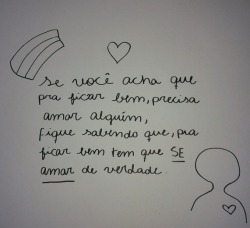 se você acha que
pra ficar bem, precisa
amar alguém,
fique sabendo que, pra
ficar bem tem que SE
AMAR de verdade.